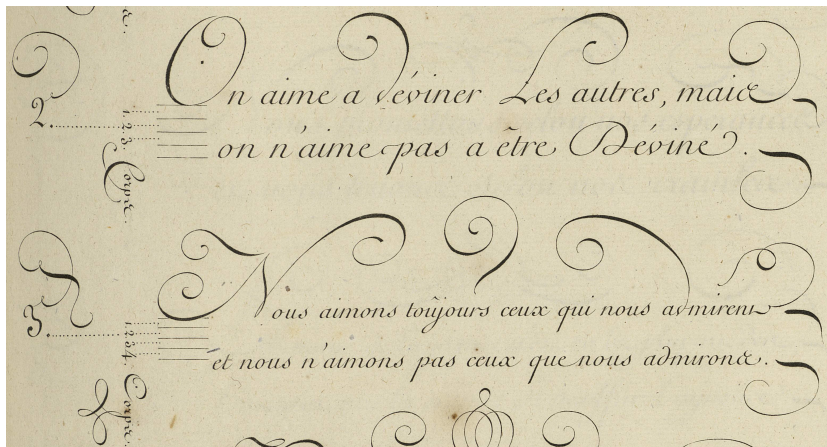 2.
1. 2. 3. Corps.
On aime a déviner Les autres, mais
on n'aime pas a être Déviné.
3.
1 2 3 4. Corps.
Nous aimons toûjours ceux qui nous admirent
et nous n'aimons pas ceux que nous admirons.